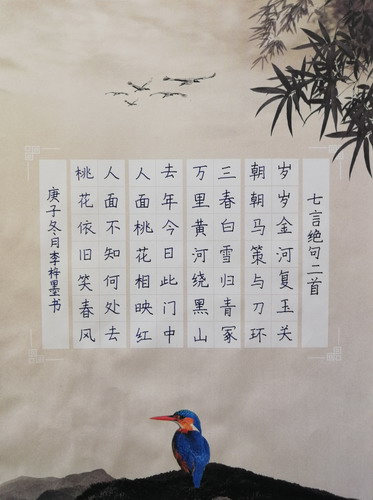 七言绝句二首
岁岁金河复玉关
朝朝马策与刀环
三春白雪归青冢
万里黄河绕黑山
去年今日此门中
人面桃花相映红
人面不知何处去
桃花依旧笑春风
庚子冬月李梓墨书